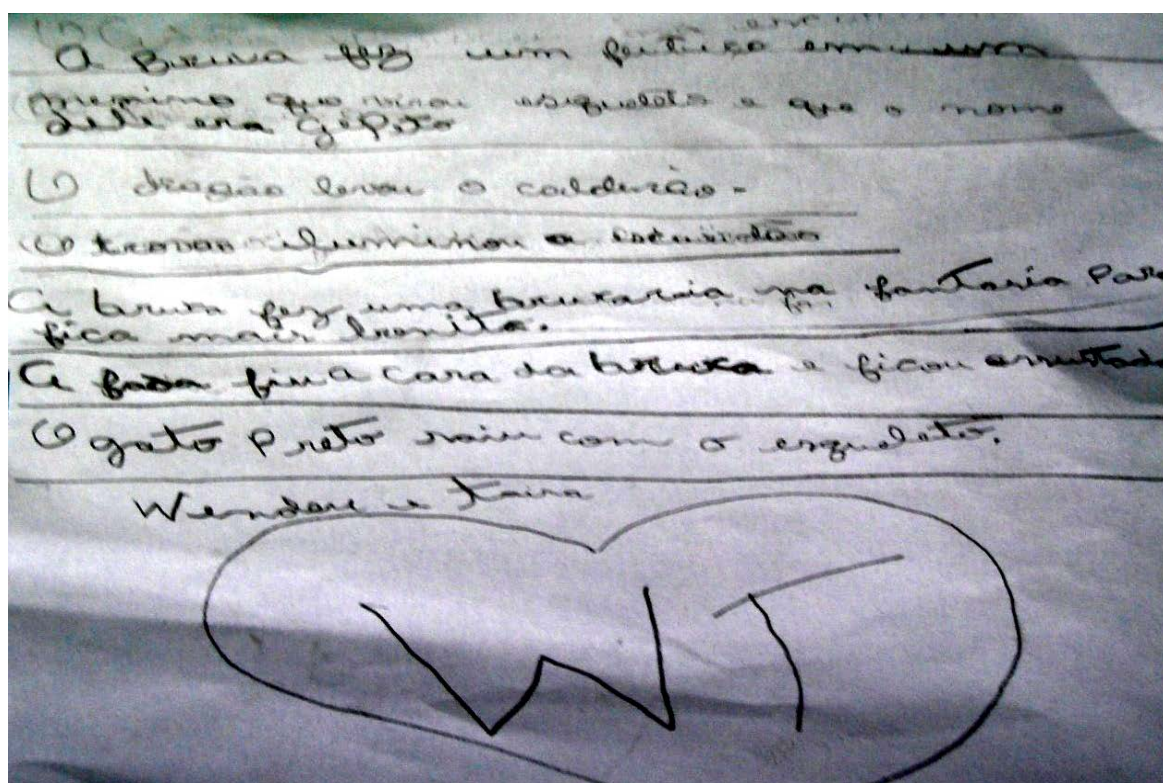 A Bruxa fez um feitiço em um
menino que virou esqueleto e que o nome
dele era
O dragão levou o caldeirão.
O trovao iluminou a escuridão
A bruxa fez uma bruxaria na fantasia Para
fica mais bonita.
A fada fiu a cara da bruxa e ficou
O gato Preto saiu com o esqueleto.
e
WT